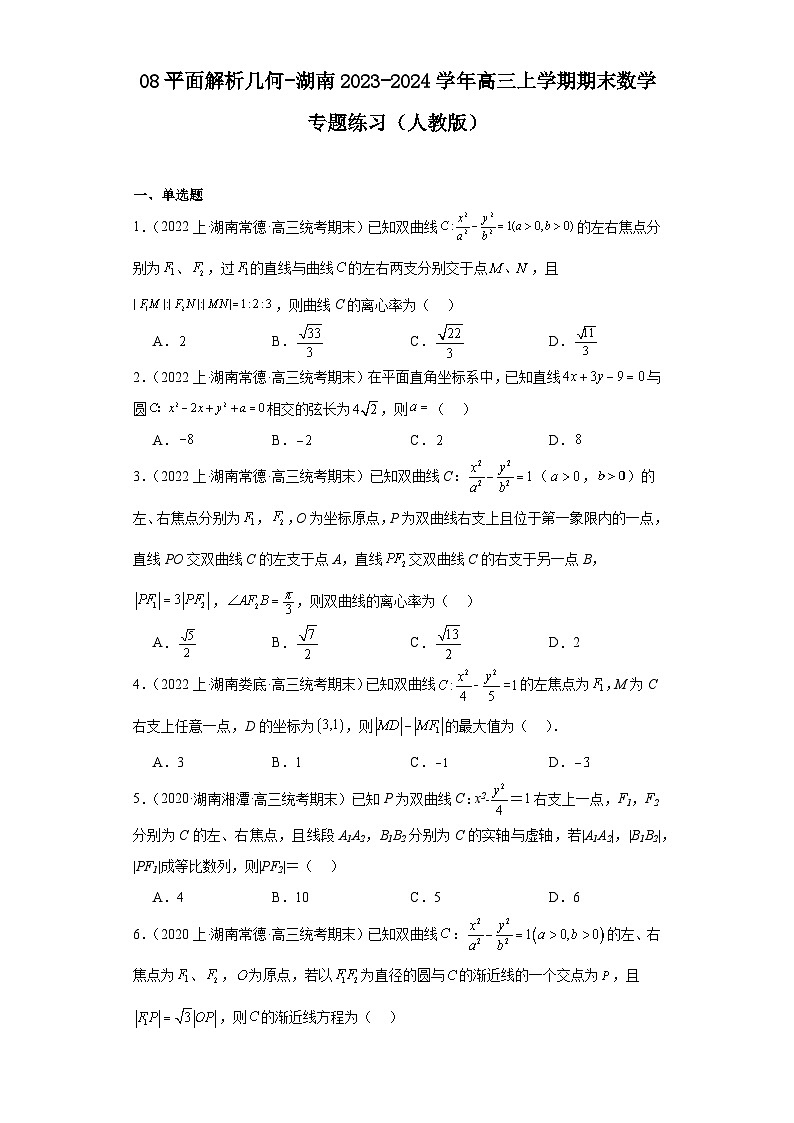 08平面解析几何-湖南2023-2024学年高三上学期期末数学
专题练习（人教版）
一、单选题
1.（2022上·湖南常德·高三统考期末）已知双曲线 C:x²/a²-y²/b²=1(a>0,b>0) 的左右焦点分
别为F₁、F₂，过F₁的直线与曲线C的左右两支分别交于点M、N，且
|F₁M|:|F₂N|:|MN|=1:2:3，则曲线C的离心率为（ ）
A．2 B．√33/3 C．√22/3 D．√11/3
2.（2022上·湖南常德·高三统考期末）在平面直角坐标系中，已知直线4x+3y-9=0与
圆C: x²-2x+y²+a=0相交的弦长为4√2，则a=（ ）
A．-8 B．-2 C．2 D．8
3.（2022上·湖南常德·高三统考期末）已知双曲线C：x²/a²-y²/b²=1（a>0，b>0）的
左、右焦点分别为F₁，F₂，O为坐标原点，P为双曲线右支上且位于第一象限内的一点，
直线PO交双曲线C的左支于点A，直线PF₂交双曲线C的右支于另一点B，
|PF₁|=3|PF₂|，∠AF₂B=π/3，则双曲线的离心率为（ ）
A．√5/2 B．√7/2 C．√13/2 D．2
4.（2022上·湖南娄底·高三统考期末）已知双曲线C:x²/4-y²/5=1的左焦点为F₁,M为C
右支上任意一点，D的坐标为(3,1)，则|MD|-|MF₁|的最大值为（ ）.
A．3 B．1 C．-1 D．-3
5.（2020·湖南湘潭·高三统考期末）已知P为双曲线C：x²-y²/4＝1右支上一点，F₁，F₂
分别为C的左、右焦点，且线段A₁A₂，B₁B₂分别为C的实轴与虚轴，若|A₁A₂|，|B₁B₂|，
|PF₁|成等比数列，则|PF₂|＝（ ）
A．4 B．10 C．5 D．6
6.（2020上·湖南常德·高三统考期末）已知双曲线C：x²/a²-y²/b²=1(a>0,b>0)的左、右
焦点为F₁、F₂，O为原点，若以F₁F₂为直径的圆与C的渐近线的一个交点为P，且
|F₁P|=√3|OP|，则C的渐近线方程为（ ）